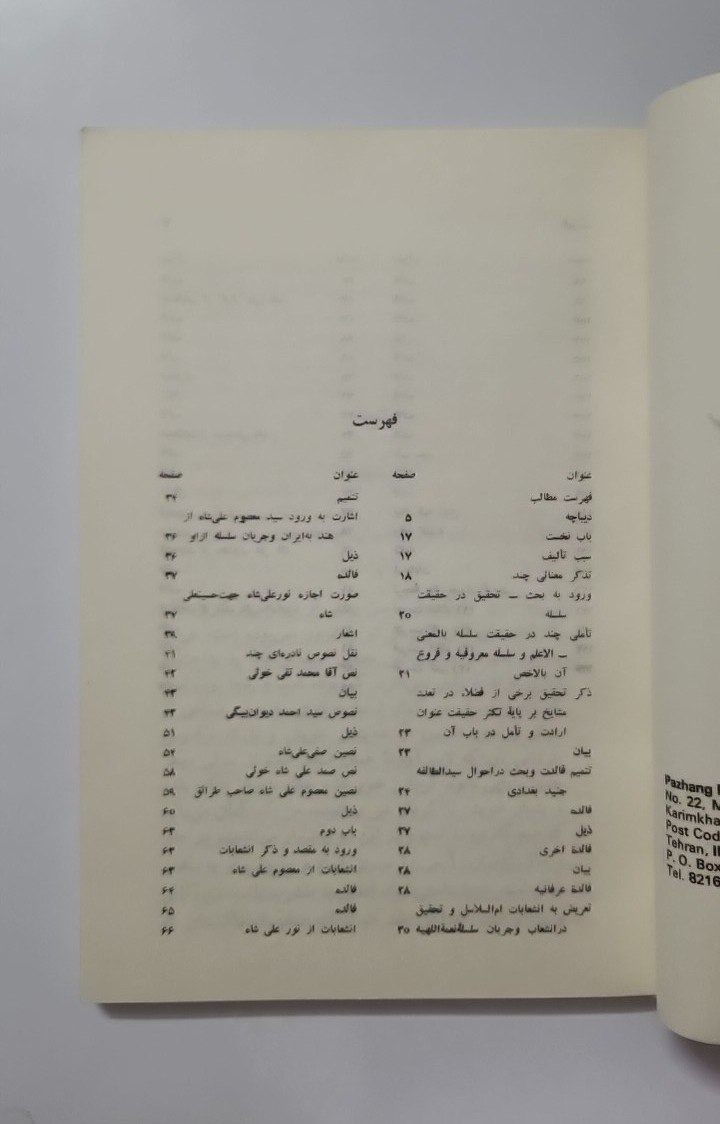 فهرست
عنوان صفحه
فهرست مطالب
دیباچه ۵
باب نخست ۱۷
سبب تألیف ۱۷
تذکر معنائی چند ۱۸
ورود به بحث ــ تحقیق در حقیقت
سلسله ۲۰
تأملی چند در حقیقت سلسله بالمعنی
ــ الاعلم و سلسله معروفیه و فروع
آن بالاخص ۲۱
ذکر تحقیق برخی از فضلاء در تعدد
مشایخ بر پایهٔ تکثر حقیقت عنوان
ارادت و تأمل در باب آن ۲۳
بیان ۲۳
تتمیم فائدت وبحث دراحوال سیدالطائفه
جنید بغدادی ۲۴
فائده ۲۷
ذیل ۲۷
فائدة اخری ۲۸
بیان ۲۸
فائدة عرفانیه ۲۸
تعریض به انشعابات ام‌السلاسل و تحقیق
درانشعاب وجریان سلسلهٔ نعمةاللهیه ۳۰
عنوان صفحه
تتمیم ۳۴
اشارت به ورود سید معصوم علی‌شاه از
هند به‌ایران وجریان سلسله ازاو ۳۶
ذیل ۳۶
فائده ۳۷
صورت اجازه نورعلی‌شاه جهت‌حسینعلی
شاه ۳۷
اشعار ۳۸
نقل نصوص نادره‌ای چند ۴۱
نص آقا محمد تقی خوئی ۴۲
بیان ۴۳
نصوص سید احمد دیوان‌بیگی ۴۳
ذیل ۵۱
نصین صفی‌علی‌شاه ۵۴
نص صمد علی شاه خوئی ۵۸
نصین معصوم علی شاه صاحب طرائق ۵۹
ذیل ۶۰
باب دوم ۶۳
ورود به مقصد و ذکر انشعابات ۶۳
انشعابات از معصوم علی شاه ۶۳
فائده ۶۴
فائده ۶۵
انشعابات از نور علی شاه ۶۶
Pazhang
No. 22,
Karimkha
Post Cod
Tehran,
P. O. Box
Tel. 8216